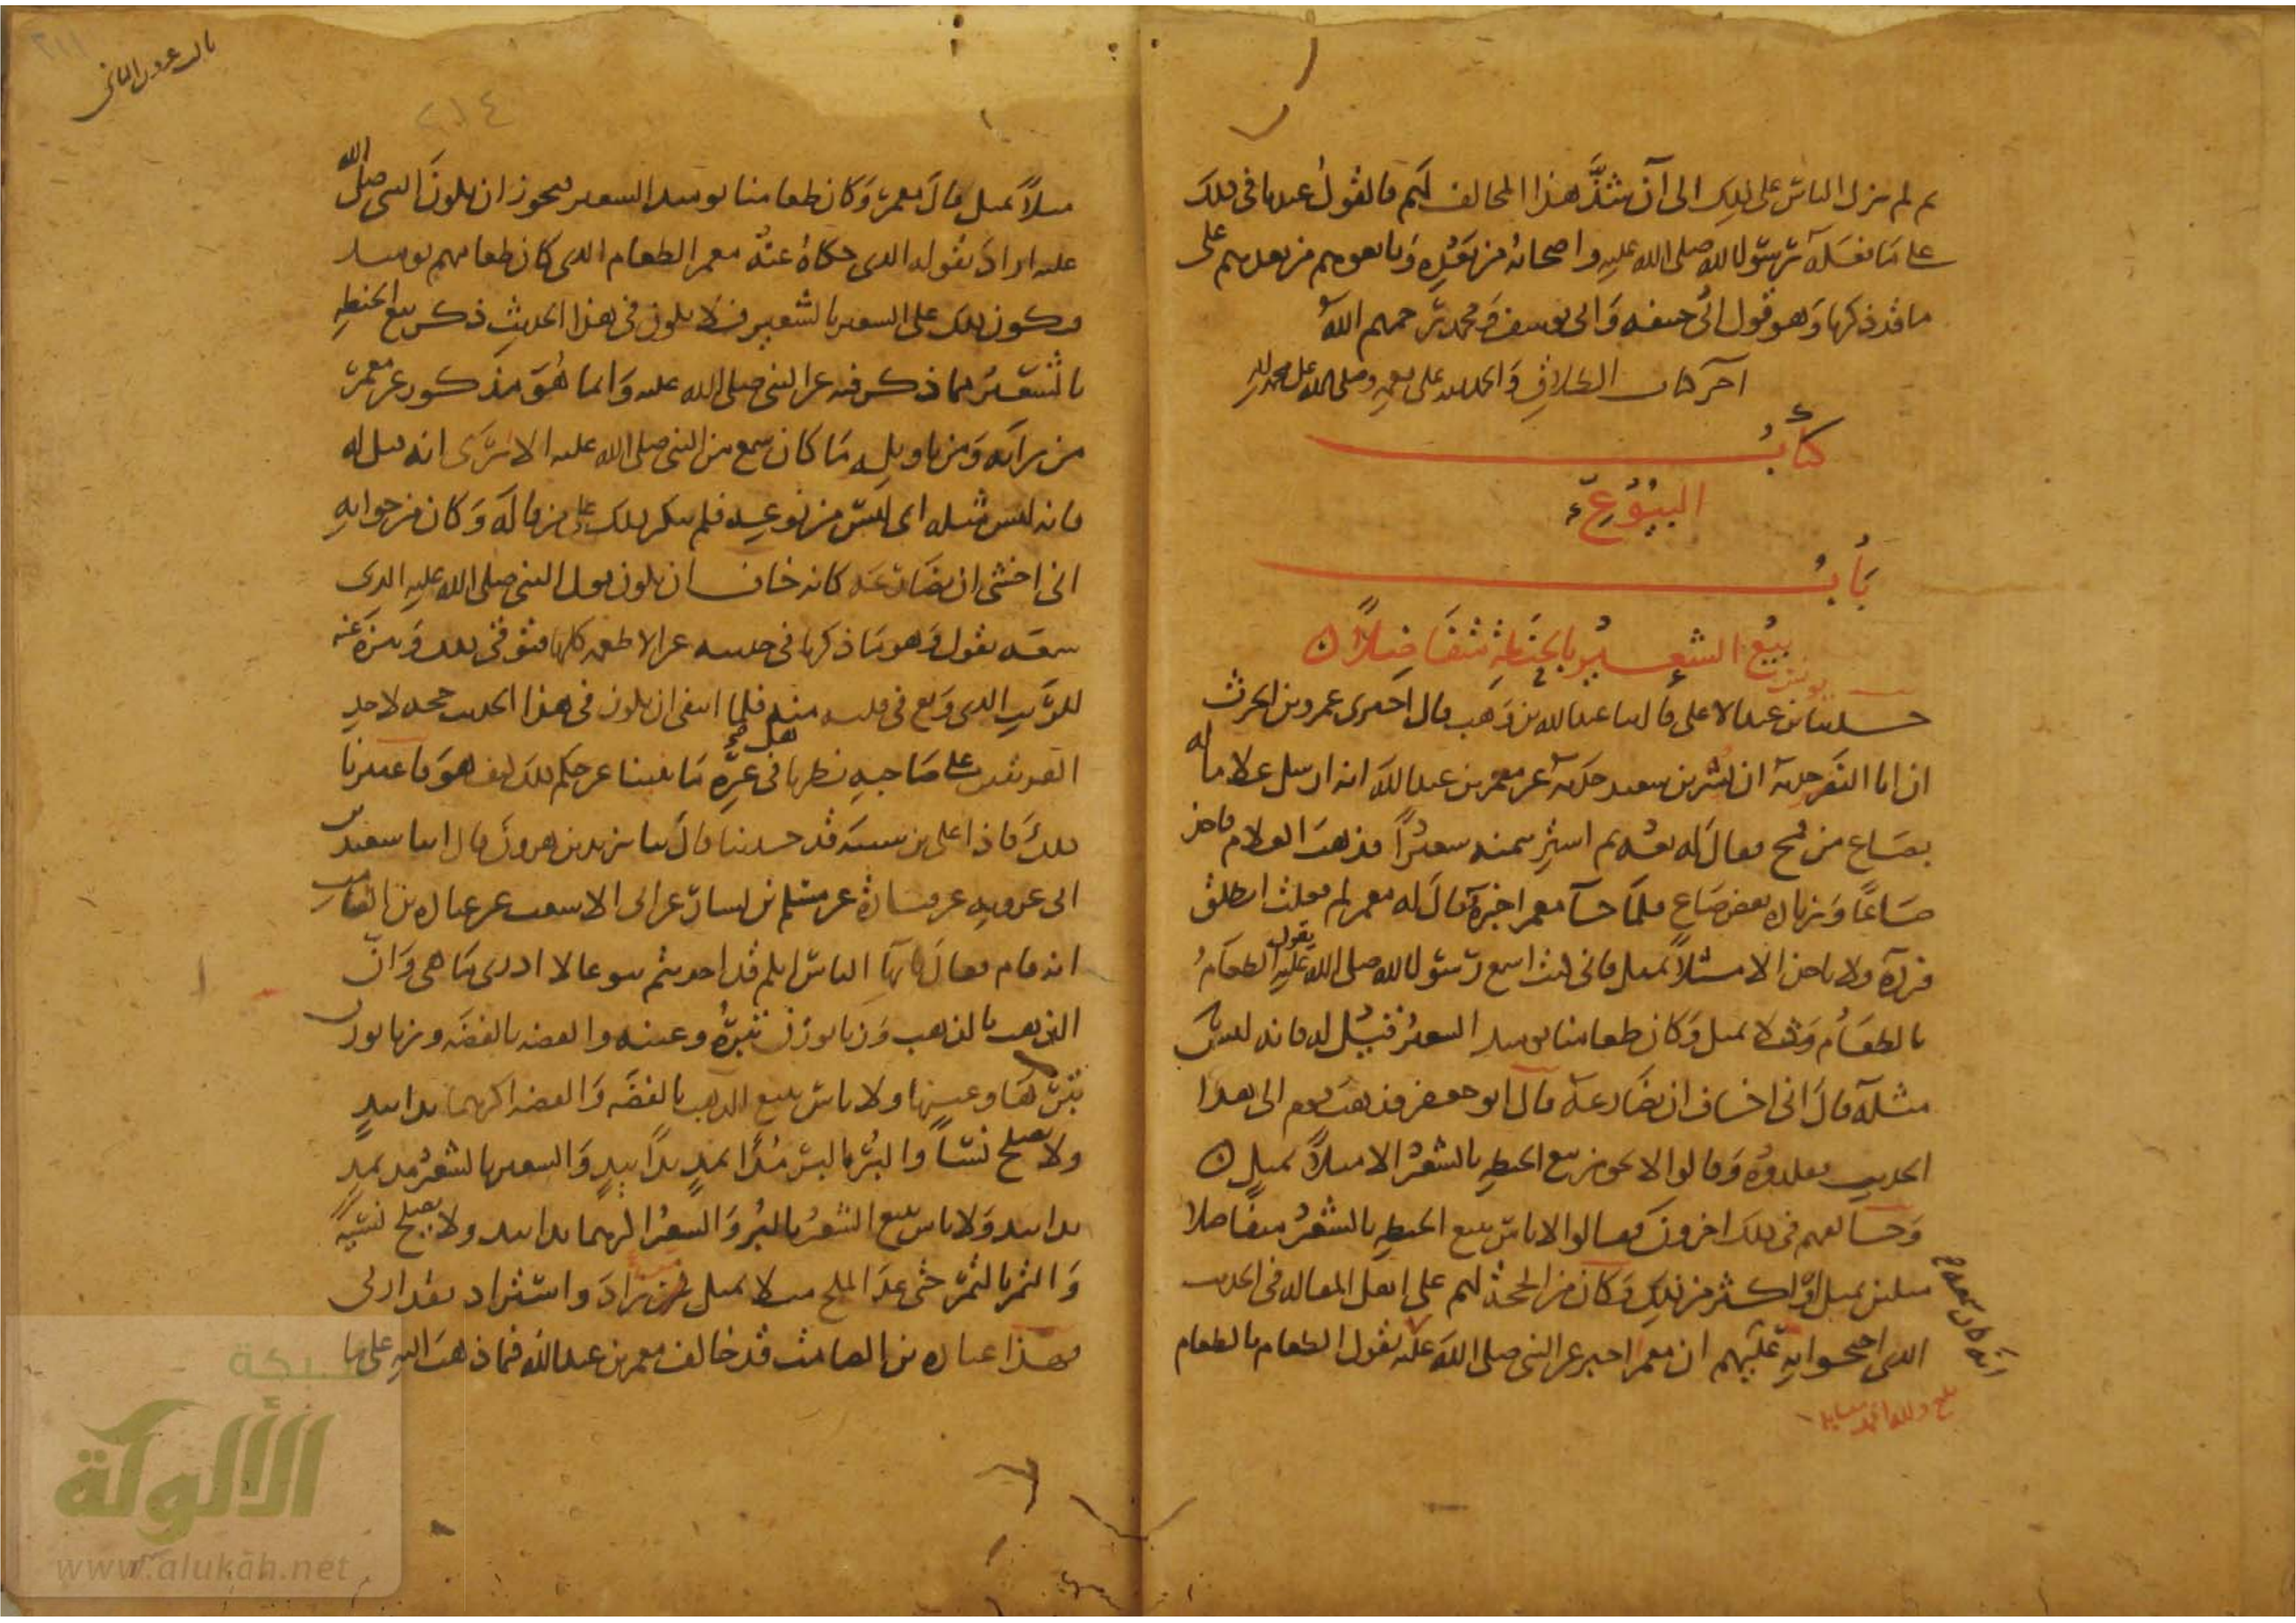 ثم لم يزل الناس على ذلك الى أن شذَّ هذا المخالف لهم فالقول عندنا فى ذلك
على ما فعله رسول الله صلى الله عليه واصحابه من بعده وتابعوهم من بعدهم على
ما قد ذكرنا وهو قول ابى حنيفه وابى يوسف ومحمد رحمهم الله
آخر كتاب الطلاق والحمد لله على نعمه وصلى الله على محمد
كتاب
البيوع
باب
بيع الشعير بالحنطة متفاضلاً
حدثنا يونس بن عبد الاعلى قال ثنا عبد الله بن وهب قال اخبرنى عمرو بن الحرث
ان ابا النضر حدثه ان بسر بن سعيد حدثه عن معمر بن عبد الله انه ارسل غلاما له
بصاع من قمح فقال له بعه ثم اشتر بثمنه شعيرا فذهب الغلام فاخذ
صاعا وزياده بعض صاع فلما جآ معمر اخبره فقال له معمر لم فعلت انطلق
فرده ولا تاخذ الا مثلاً بمثل فانى كنت اسمع رسول الله صلى الله عليه يقول الطعام
بالطعام مثلا بمثل وكان طعامنا يوميذ الشعير فقيل له فانه ليس
مثله قال انى اخاف ان يضارعه قال ابو جعفر فذهب قوم الى هذا
الحديث فقلدوه وقالوا لا يجوز بيع الحنطه بالشعير الا مثلاً بمثل
وخالفهم فى ذلك اخرون فقالوا لا باس ببيع الحنطه بالشعير متفاضلا
مثلين بمثل او اكثر من ذلك وكان من الحجة لهم على اهل المقاله فى الحديث
الذى احتجوا به عليهم ان معمرا اخبر عن النبى صلى الله عليه يقول الطعام بالطعام
انه كان سمعه
بلغ
مثلاً بمثل قال معمر وكان طعامنا يوميذ الشعير فيجوز ان يكون النبى صلى الله
عليه اراد بقوله الذى حكاه عنه معمر الطعام الذى كان طعامهم يوميذ
فيكون ذلك على الشعير بالشعير فلا يكون فى هذا الحديث ذكر بيع الحنطه
بالشعير مما ذكر فيه عن النبى صلى الله عليه وانما هو مذكور عن معمر
من رايه ومن تاويله ما كان سمع من النبى صلى الله عليه الا ترى انه قيل له
فانه ليس مثله اى ليس من نوعه فلم ينكر ذلك على من قاله وكان من جوابه
انى اخشى ان يضارعه كانه خاف ان يكون قول النبى صلى الله عليه الذى
سمعه يقول وهو ما ذكرنا فى حديثه عن الاطعمه كلها فتوقى ذلك وتنزه عنه
للريب الذى وقع فى قلبه منه فلما انتفى ان يكون فى هذا الحديث حجه لاحد
الفريقين على صاحبه نظرنا هل فى غيره ما ينبئنا عن حكم ذلك كيف هو فاعتبرنا
ذلك فاذا على بن شيبه قد حدثنا قال ثنا يزيد بن هرون قال انبا سعيد بن
ابى عروبه عن قتادة عن مسلم بن يسار عن ابى الاشعث عن عباده بن الصامت
انه قام فقال يا ايها الناس انكم قد احدثتم بيوعا لا ادرى ما هى وان
الذهب بالذهب وزنا بوزن تبره وعينه والفضه بالفضه وزنا بوزن
تبرها وعينها ولا باس ببيع الذهب بالفضه والفضه اكثرهما يدا بيد
ولا يصلح نسأً والبر بالبر مُدا بمد يدا بيد والشعير بالشعير مد بمد
يدا بيد ولا باس ببيع الشعير بالبر والشعير اكثرهما يدا بيد ولا يصلح نسيه
والتمر بالتمر حتى عد الملح مثلا بمثل من زاد واستزاد فقد اربى
فهذا عباده بن الصامت قد خالف معمر بن عبد الله فيما ذهب اليه على ما
٢١٤
٢١١
شبكة
الألوكة
www.alukah.net